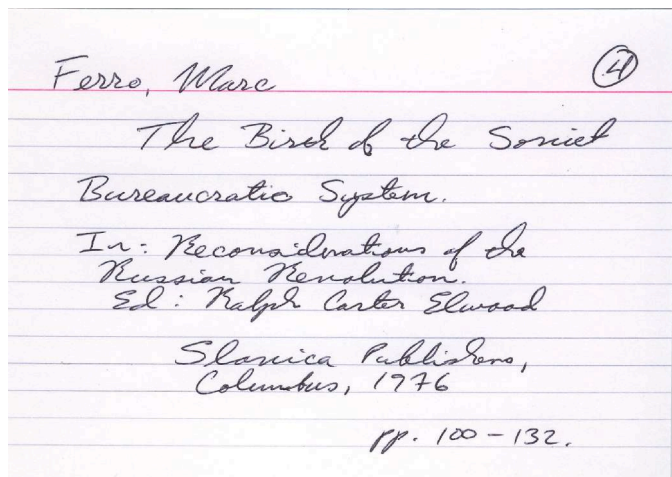 Ferro, Marc 4
The Birth of the Soviet
Bureaucratic System.
In: Reconsiderations of the
Russian Revolution.
Ed: Ralph Carter Elwood
Slavica Publishers,
Columbus, 1976
pp. 100-132.